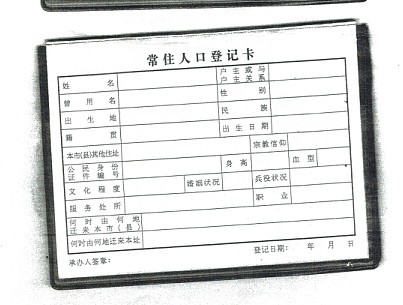 常住人口登记卡
姓名 户主或与户主关系
曾用名 性别
出生地 民族
籍贯 出生日期
本市(县)其他住址 宗教信仰
公民身份证件编号 身高 血型
文化程度 婚姻状况 兵役状况
服务处所 职业
何时由何地迁来本市(县)
何时由何地迁来本址
承办人签章: 登记日期: 年 月 日